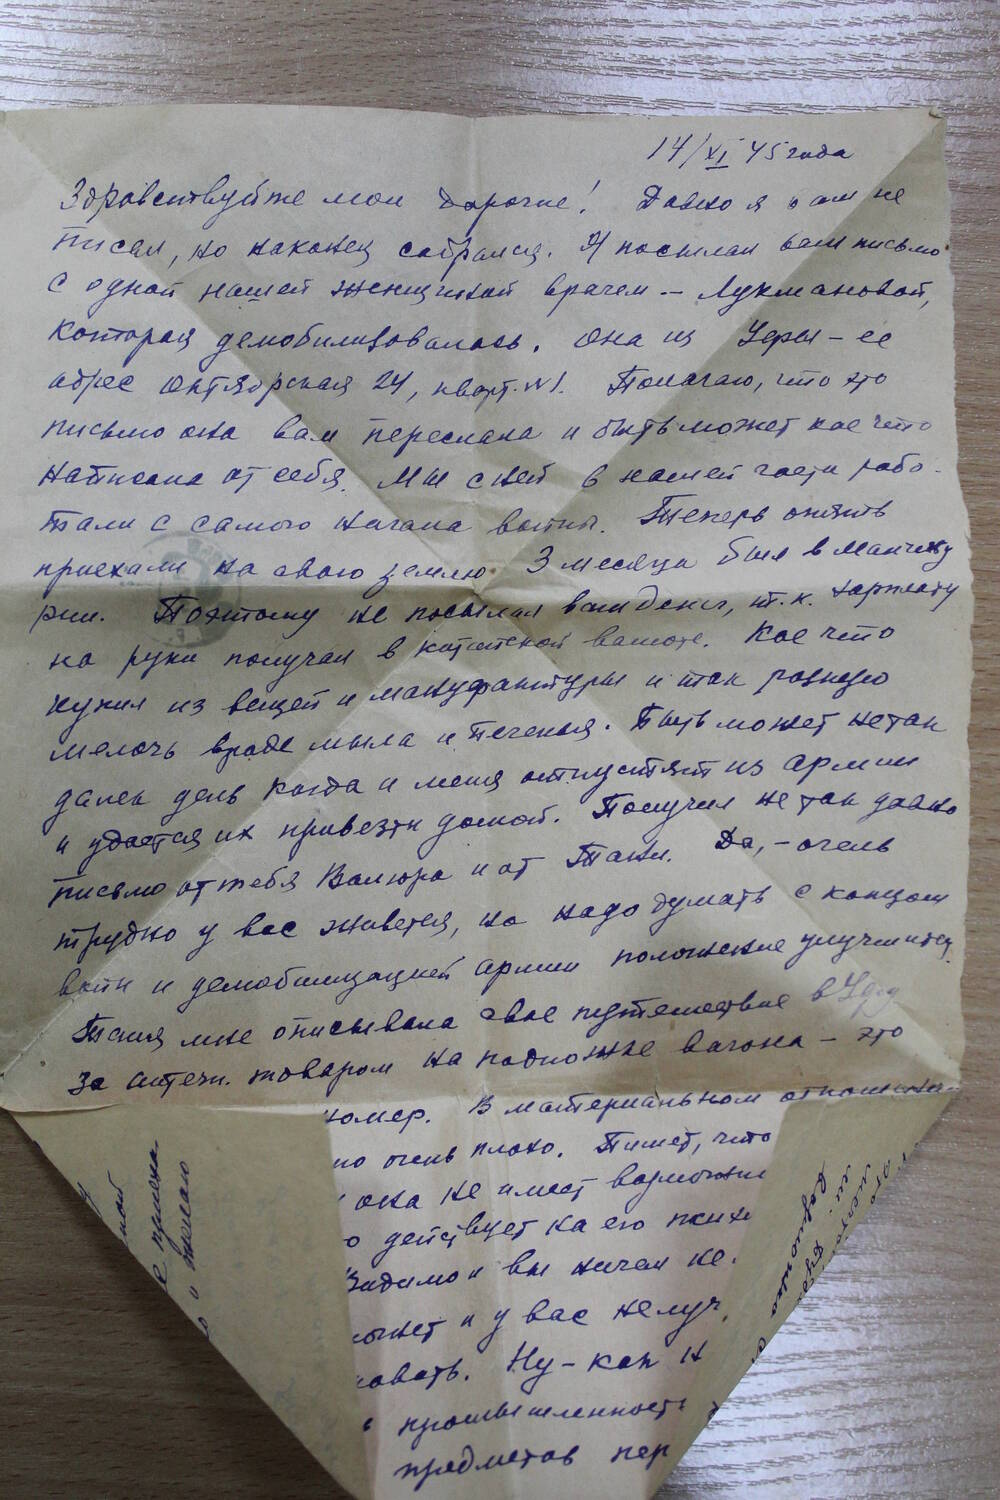 14/XI 45 года
Здравствуйте мои дорогие! Давно я вам не
писал, но наконец собрался. Я посылал вам письмо
с одной нашей женщиной врачем – Лукмановой,
которая демобилизовалась. Она из Уфы – ее
адрес Октябрская 24, кварт. №1. Полагаю, что это
письмо она вам переслала и быть может кое что
написала от себя. Мы с ней в нашей части рабо-
тали с самого начала войны. Теперь опять
приехали на свою землю. 3 месяца был в Манчжу
рии. Поэтому не посылал вам денег, т.к. зарплату
на руки получал в китайской валюте. Кое что
купил из вещей и мануфактуры и так разную
мелочь вроде мыла и печенья. Быть может не так
далек день когда и меня отпустят из армии
и удастся их привезти домой. Получил не так давно
письмо от тебя Валюра и от Тани. Да, – очень
трудно у вас живется, но надо думать с концом
войны и демобилизацией армии положение улучшится.
Таня мне описывала свое путешествие в Уфу
за аптечн. товаром на подножке вагона – это
номер. В материальном отношении
но очень плохо. Пишет, что
она не имеет возможн
о действует на его психи
Видимо и вы начал не
ожет и у вас не луч
овать. Ну – как н
промышленность
предметов пер